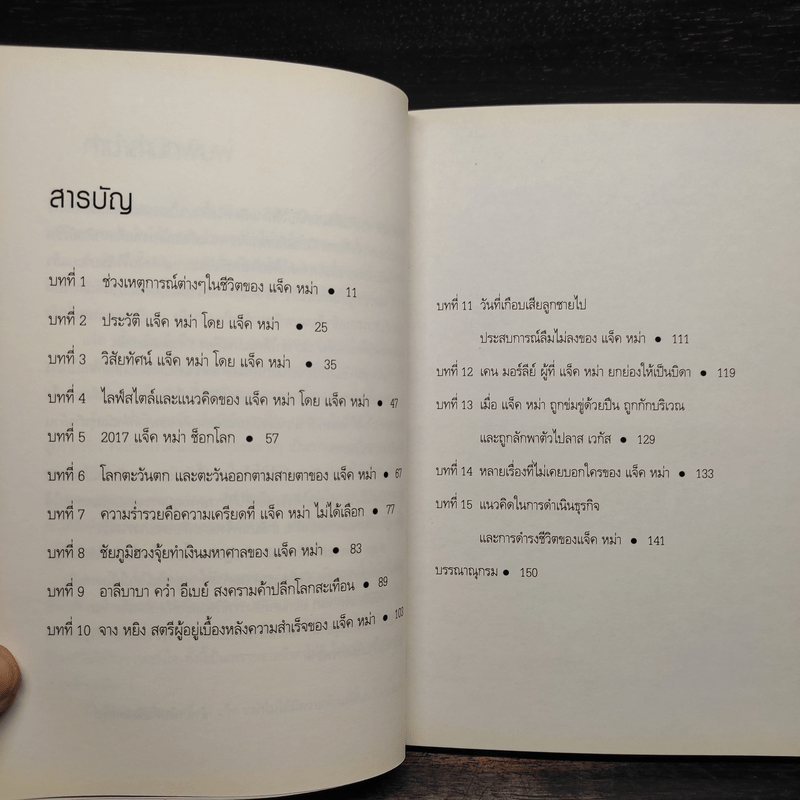 สารบัญ
บทที่ 1 ช่วงเหตุการณ์ต่างๆในชีวิตของ แจ็ค หม่า ● 11
บทที่ 2 ประวัติ แจ็ค หม่า โดย แจ็ค หม่า ● 25
บทที่ 3 วิสัยทัศน์ แจ็ค หม่า โดย แจ็ค หม่า ● 35
บทที่ 4 ไลฟ์สไตล์และแนวคิดของ แจ็ค หม่า โดย แจ็ค หม่า ● 47
บทที่ 5 2017 แจ็ค หม่า ช็อกโลก ● 57
บทที่ 6 โลกตะวันตก และตะวันออกตามสายตาของ แจ็ค หม่า ● 67
บทที่ 7 ความร่ำรวยคือความเครียดที่ แจ็ค หม่า ไม่ได้เลือก ● 77
บทที่ 8 ชัยภูมิฮวงจุ้ยทำเงินมหาศาลของ แจ็ค หม่า ● 83
บทที่ 9 อาลีบาบา คว่ำ อีเบย์ สงครามค้าปลีกโลกสะเทือน ● 89
บทที่ 10 จาง หยิง สตรีผู้อยู่เบื้องหลังความสำเร็จของ แจ็ค หม่า ● 103
บทที่ 11 วันที่เกือบเสียลูกชายไป
ประสบการณ์ลืมไม่ลงของ แจ็ค หม่า ● 111
บทที่ 12 เคน มอร์ลีย์ ผู้ที่ แจ็ค หม่า ยกย่องให้เป็นบิดา ● 119
บทที่ 13 เมื่อ แจ็ค หม่า ถูกข่มขู่ด้วยปืน ถูกกักบริเวณ
และถูกลักพาตัวไปลาส เวกัส ● 129
บทที่ 14 หลายเรื่องที่ไม่เคยบอกใครของ แจ็ค หม่า ● 133
บทที่ 15 แนวคิดในการดำเนินธุรกิจ
และการดำรงชีวิตของแจ็ค หม่า ● 141
บรรณาณุกรม ● 150